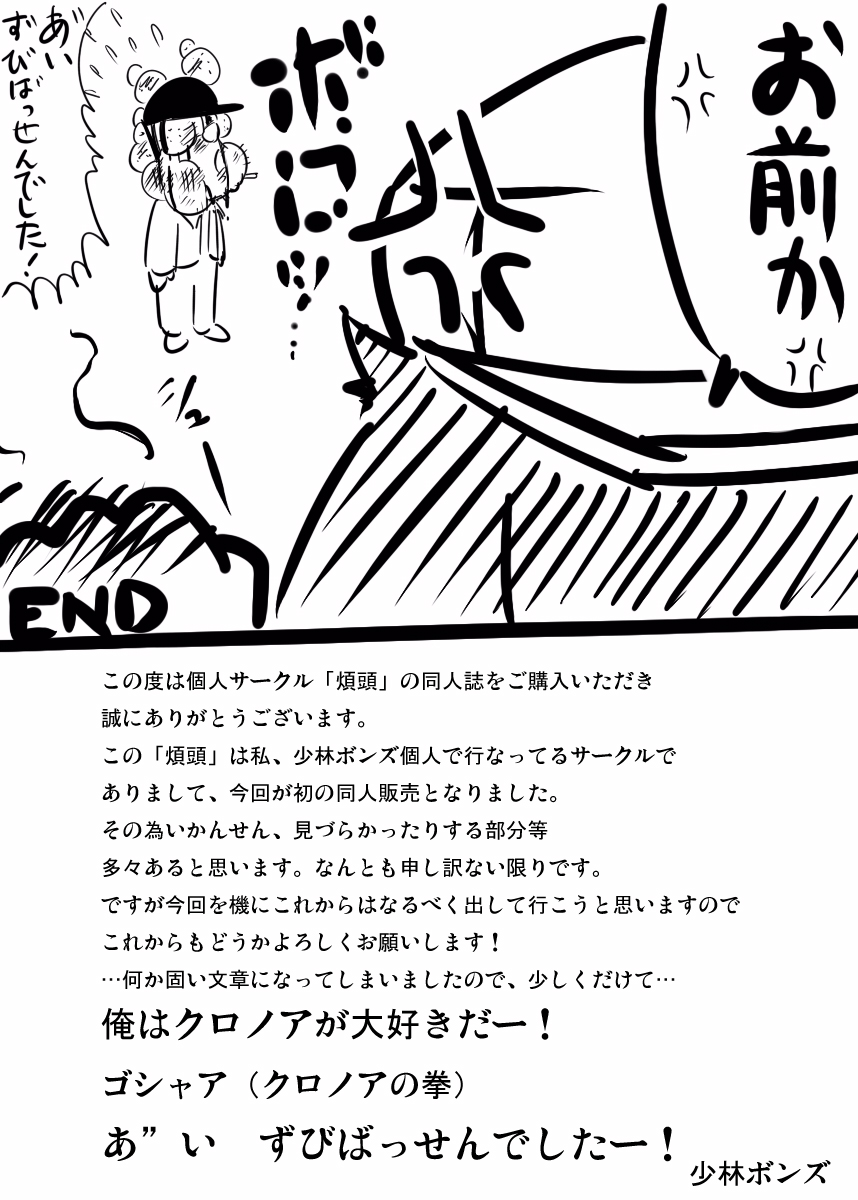 お前か
ボロ…
あ゛い
ずびばっせんでした!
END
この度は個人サークル「煩頭」の同人誌をご購入いただき
誠にありがとうございます。
この「煩頭」は私、少林ボンズ個人で行なってるサークルで
ありまして、今回が初の同人販売となりました。
その為いかんせん、見づらかったりする部分等
多々あると思います。なんとも申し訳ない限りです。
ですが今回を機にこれからはなるべく出して行こうと思いますので
これからもどうかよろしくお願いします！
…何か固い文章になってしまいましたので、少しくだけて…
俺はクロノアが大好きだー！
ゴシャア（クロノアの拳）
あ”い　ずびばっせんでしたー！
少林ボンズ